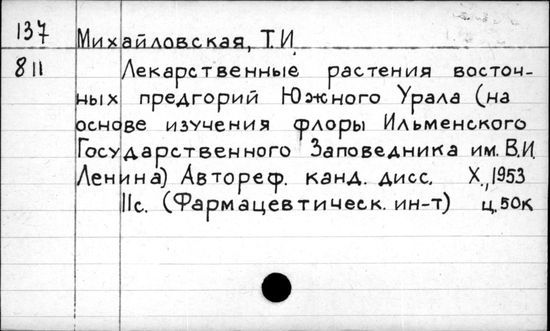 137 Михайловская, Т.И.
811 Лекарственные растения восточ-
ных предгорий Южного Урала (на
основе изучения флоры Ильменского
Государственного Заповедника им. В.И.
Ленина) Автореф. канд. дисс. Х., 1953
11с. (Фармацевтическ. ин-т) ц. 50к